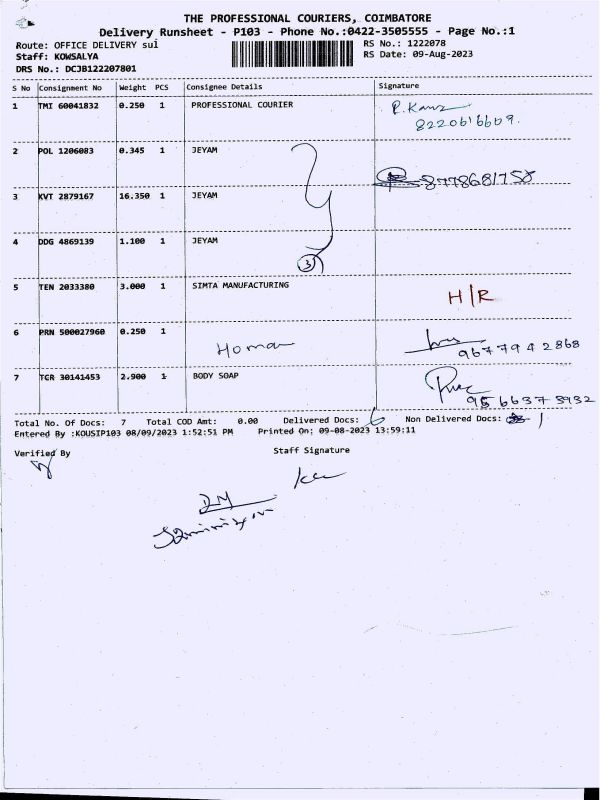 THE PROFESSIONAL COURIERS, COIMBATORE
Delivery Runsheet - P103 - Phone No.:0422-3505555 - Page No.:1
Route: OFFICE DELIVERY sul
RS No.: 1222078
Staff: KOWSALYA
RS Date: 09-Aug-2023
DRS No.: DCJB122207801
S No Consignment No Weight PCS Consignee Details Signature
1 TMI 60041832 0.250 1 PROFESSIONAL COURIER
8220616609.
2 POL 1206083 0.345 1 JEYAM
8778681758
3 KVT 2879167 16.350 1 JEYAM
4 DDG 4869139 1.100 1 JEYAM
3
5 TEN 2033380 3.000 1 SIMTA MANUFACTURING
H/R
6 PRN 500027960 0.250 1
Homan
9677942868
7 TCR 30141453 2.900 1 BODY SOAP
9566373932
Total No. Of Docs: 7 Total COD Amt: 0.00 Delivered Docs: 6 Non Delivered Docs: 1
Entered By :KOUSIP103 08/09/2023 1:52:51 PM Printed On: 09-08-2023 13:59:11
Verified By Staff Signature